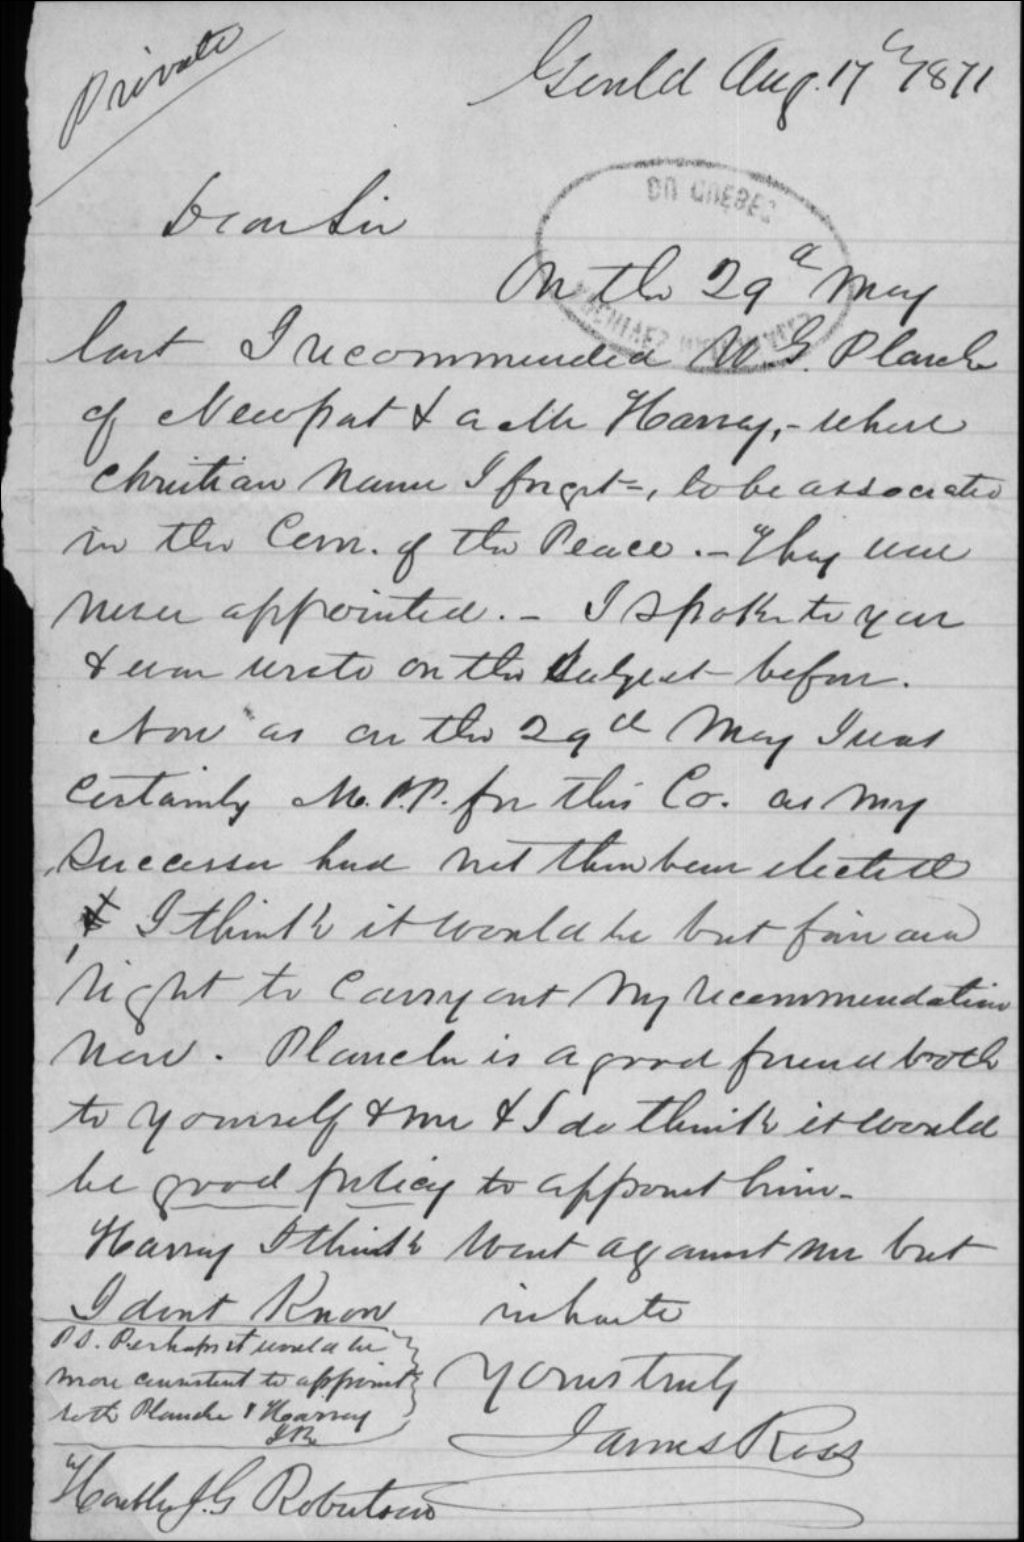 Private
Gould Aug. 17th 1871
Dear Sir
DU QUEBEC
ARCHIVES
On the 29th May
last I recommended W. G. Planche
of Newport & a Mr Harvey, - whose
christian name I forget -, to be associated
in the Com. of the Peace. - They were
never appointed. - I spoke to you
& even wrote on the subject before.
Now as on the 29th May I was
certainly M.P.P. for this Co. as my
successor had not then been elected
& I think it would be but fair and
right to carry out my recommendation
now. Planche is a good friend both
to yourself & me & I do think it would
be good policy to appoint him -
Harvey I think went against me but
I dont know in haste
P.S. Perhaps it would be
more consistent to appoint
both Planche & Harvey
J.R.
Yours truly
James Ross
Honble J. G Robertson